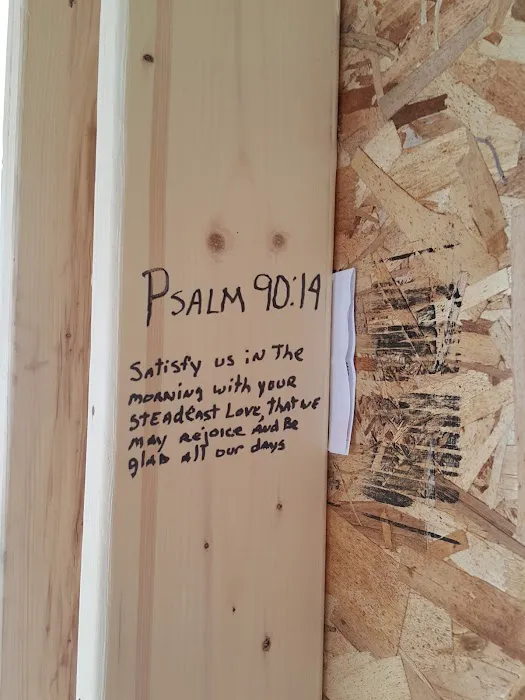 PSALM 90:14
Satisfy us in The
morning with your
STEADEAST Love, that we
may rejoice and be
glad all our days